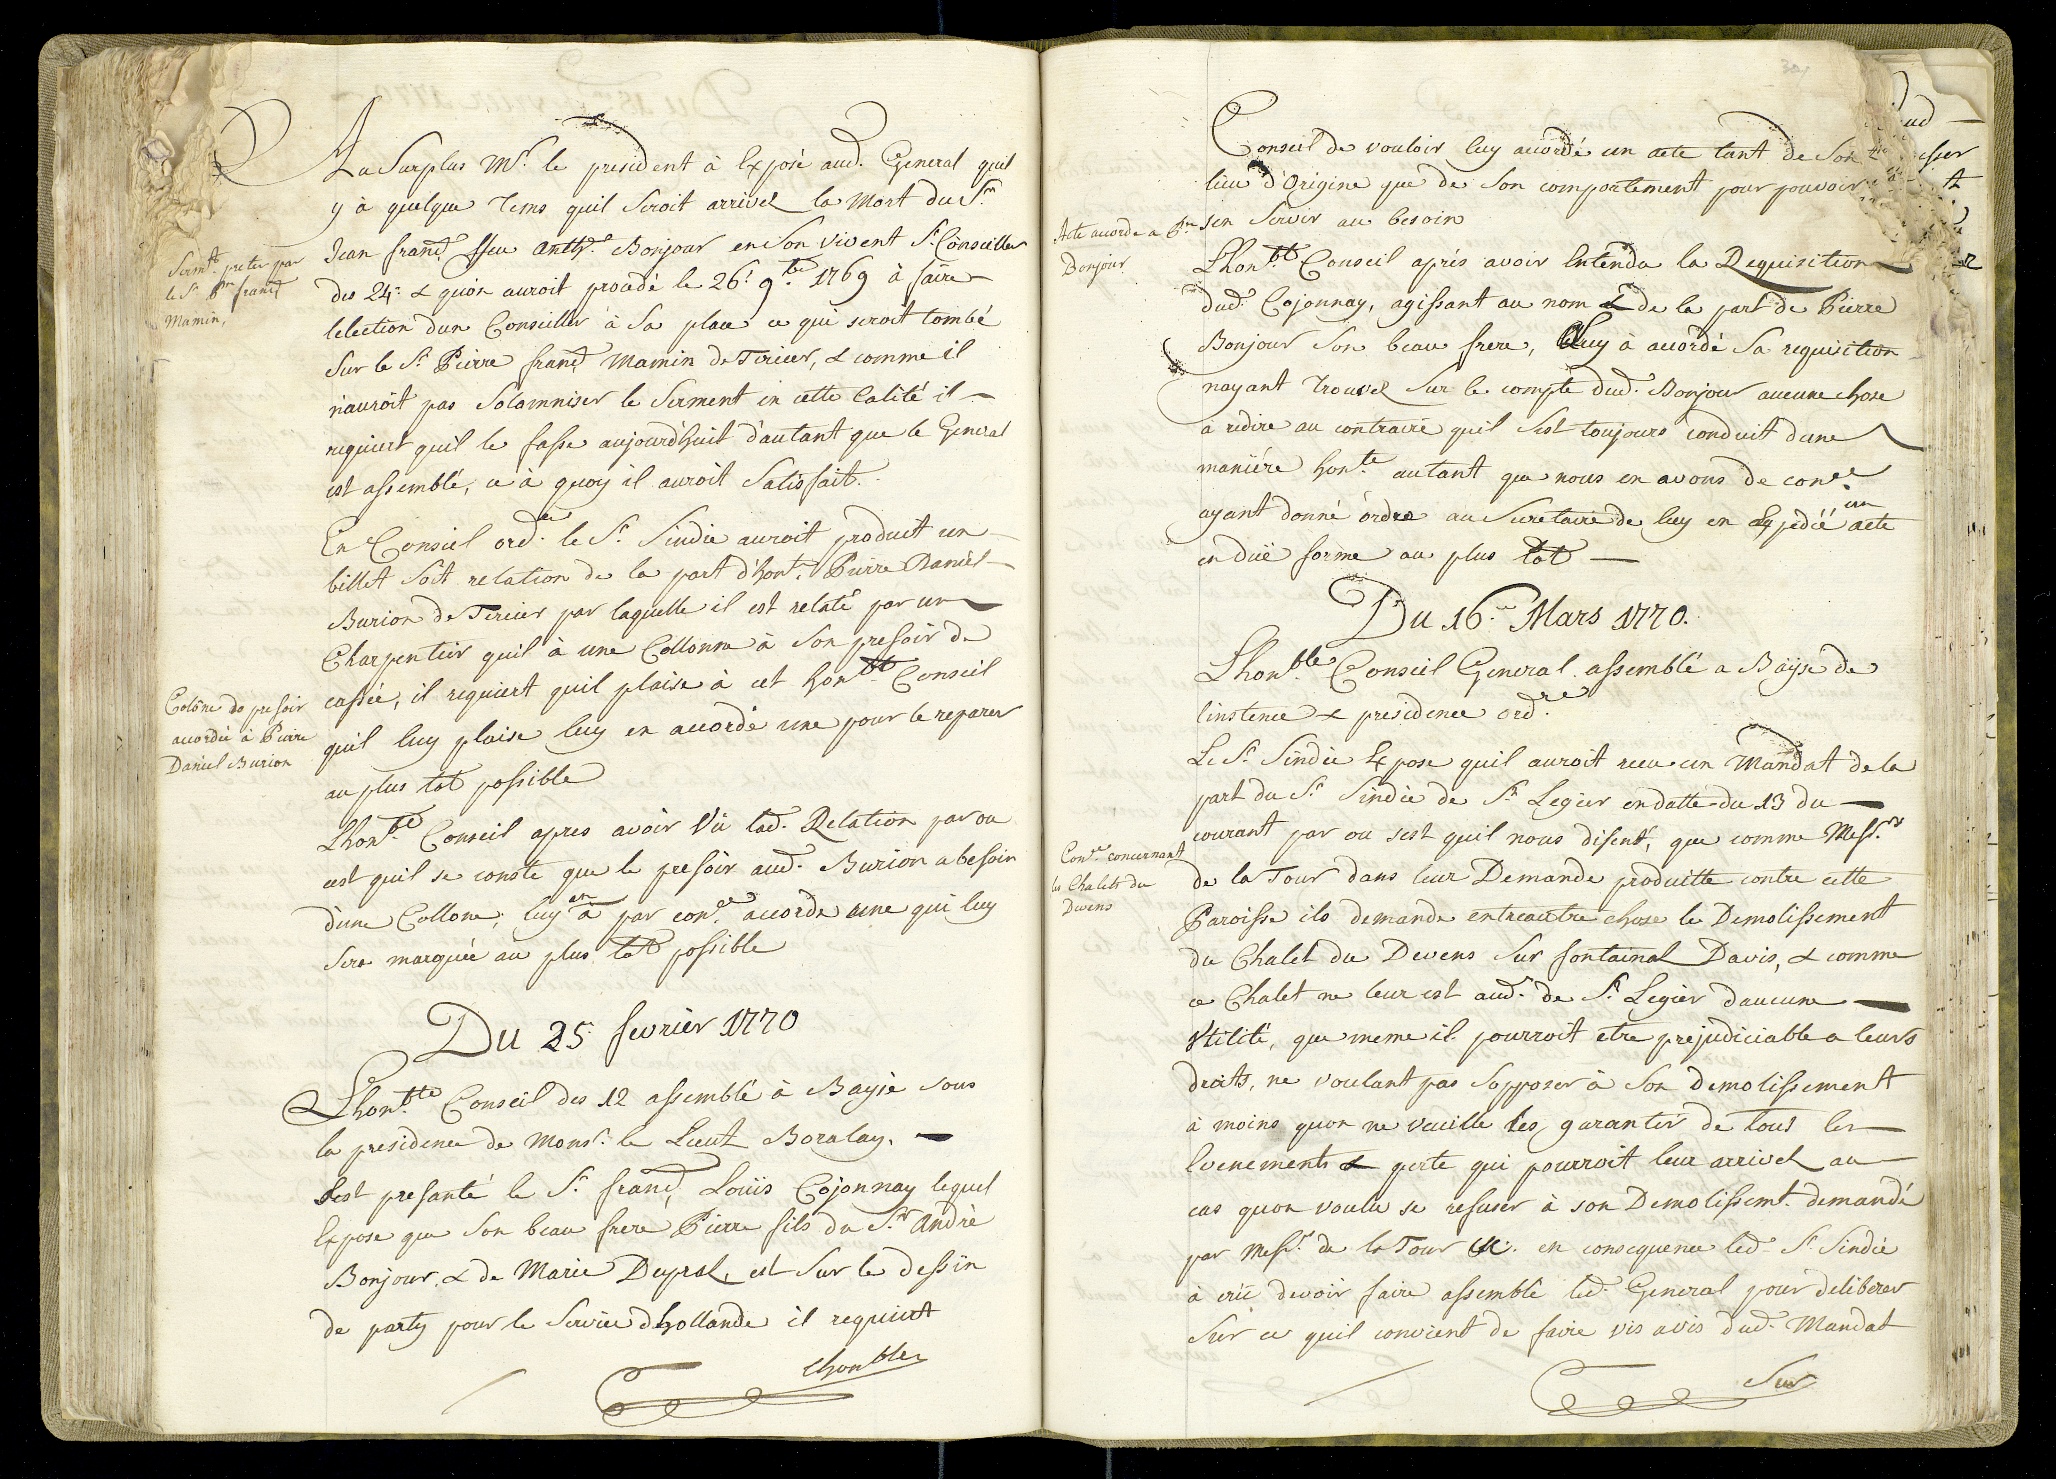 Au Surplus Mr. le president à Exposé aud. General quil
y à quelque Tems quil Seroit arrivez la Mort du Sr.
Jean franç. ffeu Anthe. Bonjour en Son vivent Sr. Conseiller
des 24: & quon auroit procedé le 26e. 9bre. 1769 à faire
lelection dun Conseiller à Sa place ce qui seroit tombé
Sur le Sr. Pierre franç. Mamin de Tercier, & comme il
n'auroit pas Solomniser le Serment en cette Calité il
requiert quil le fasse aujourdhuit d'autant que le General
est assemblé, ce à quoy il auroit Satisfait.
Sermt. preter par
le Sr. Prre franç.
Mamin,
En Conseil ord.re le Sr. Sindic auroit produit un
billet soit relation de la part d'hont. Pierre Daniel
Burion de Tercier par laquelle il est relaté par un
Charpentier quil à une Collonne à Son pressoir de
cassée, il requiert quil plaise à cet honble Conseil
quil luy plaise luy en accordé une pour le reparer
au plus tot possible
Colône de pressoir
accordée à Pierre
Daniel Burion
Lhonble. Conseil apres avoir Vû lad. Relation par ou
cest quil se conste que le pressoir aud. Burion a besoin
d'une Collone, luy en à par conce. accordé une qui luy
Sera marquée au plus tot possible
Du 25 fevrier 1770
Lhonble. Conseil des 12 assemblé à Baÿse sous
la presidence de Monsr. le Lieut Boralay.
Sest presanté le Sr. franç. Louïs Cojonnay lequel
Expose que Son beau frere Pierre fils du Sr. André
Bonjour & de Marie Depral, est Sur le dessin
de party pour le Service dhollande il requiert
lhonble
Conseil de vouloir luy accordé un acte tant de Son
lieu d'Origine que de Son comportement pour pouvoir
sen Servir au besoin
Acte accordé a Prre
Bonjour
Lhonble. Conseil après avoir Entendu la Requisition
dud. Cojonnay, agissant au nom & de la part de Pierre
Bonjour Son beau frere, Luy à accordé Sa requisition
nayant Trouvez Sur le compte dud. Bonjour aucune chose
a redire au contraire quil Sest toujours conduit dune
maniére honte. autant que nous en avons de conce.
ayant donné órdre au Secretaire de luy en Expedié un acte
en duë forme au plus tôt
Du 16e. Mars 1770.
Lhonble. Conseil General assemblé a Baÿse de
linstence & presidence ord.re
Le Sr. Sindic Expose quil auroit receu un Mandat de la
part du Sr. Sindic de St. Legier en datte du 13 du
courant par ou sest quil nous disent, que comme Messrs.
de la Tour dans leur Demande produitte contre cette
Paroisse ils demande entreautre chose le Demolissement
du Chalet du Devens Sur fontainal Davis, & comme
ce Chalet ne leur est aud. de St. Legier daucune
Utilité, que meme il pourroit etre prejudiciable a leurs
droits, ne voulant pas Sopposer à Son demolissement
à moins quon ne veuille les garantir de tous les
Evenements & perte qui pourroit leur arrivez au
cas quon voulu se refuser à son Demolissemt. demandé
par Messrs. de la Tour &c. en consequence led. Sr. Sindic
à crû devoir faire assemblé led. General pour deliberer
Sur ce quil convient de faire vis avis dud. Mandat
Conce. concernant
les Chalets du
Devens
Sur